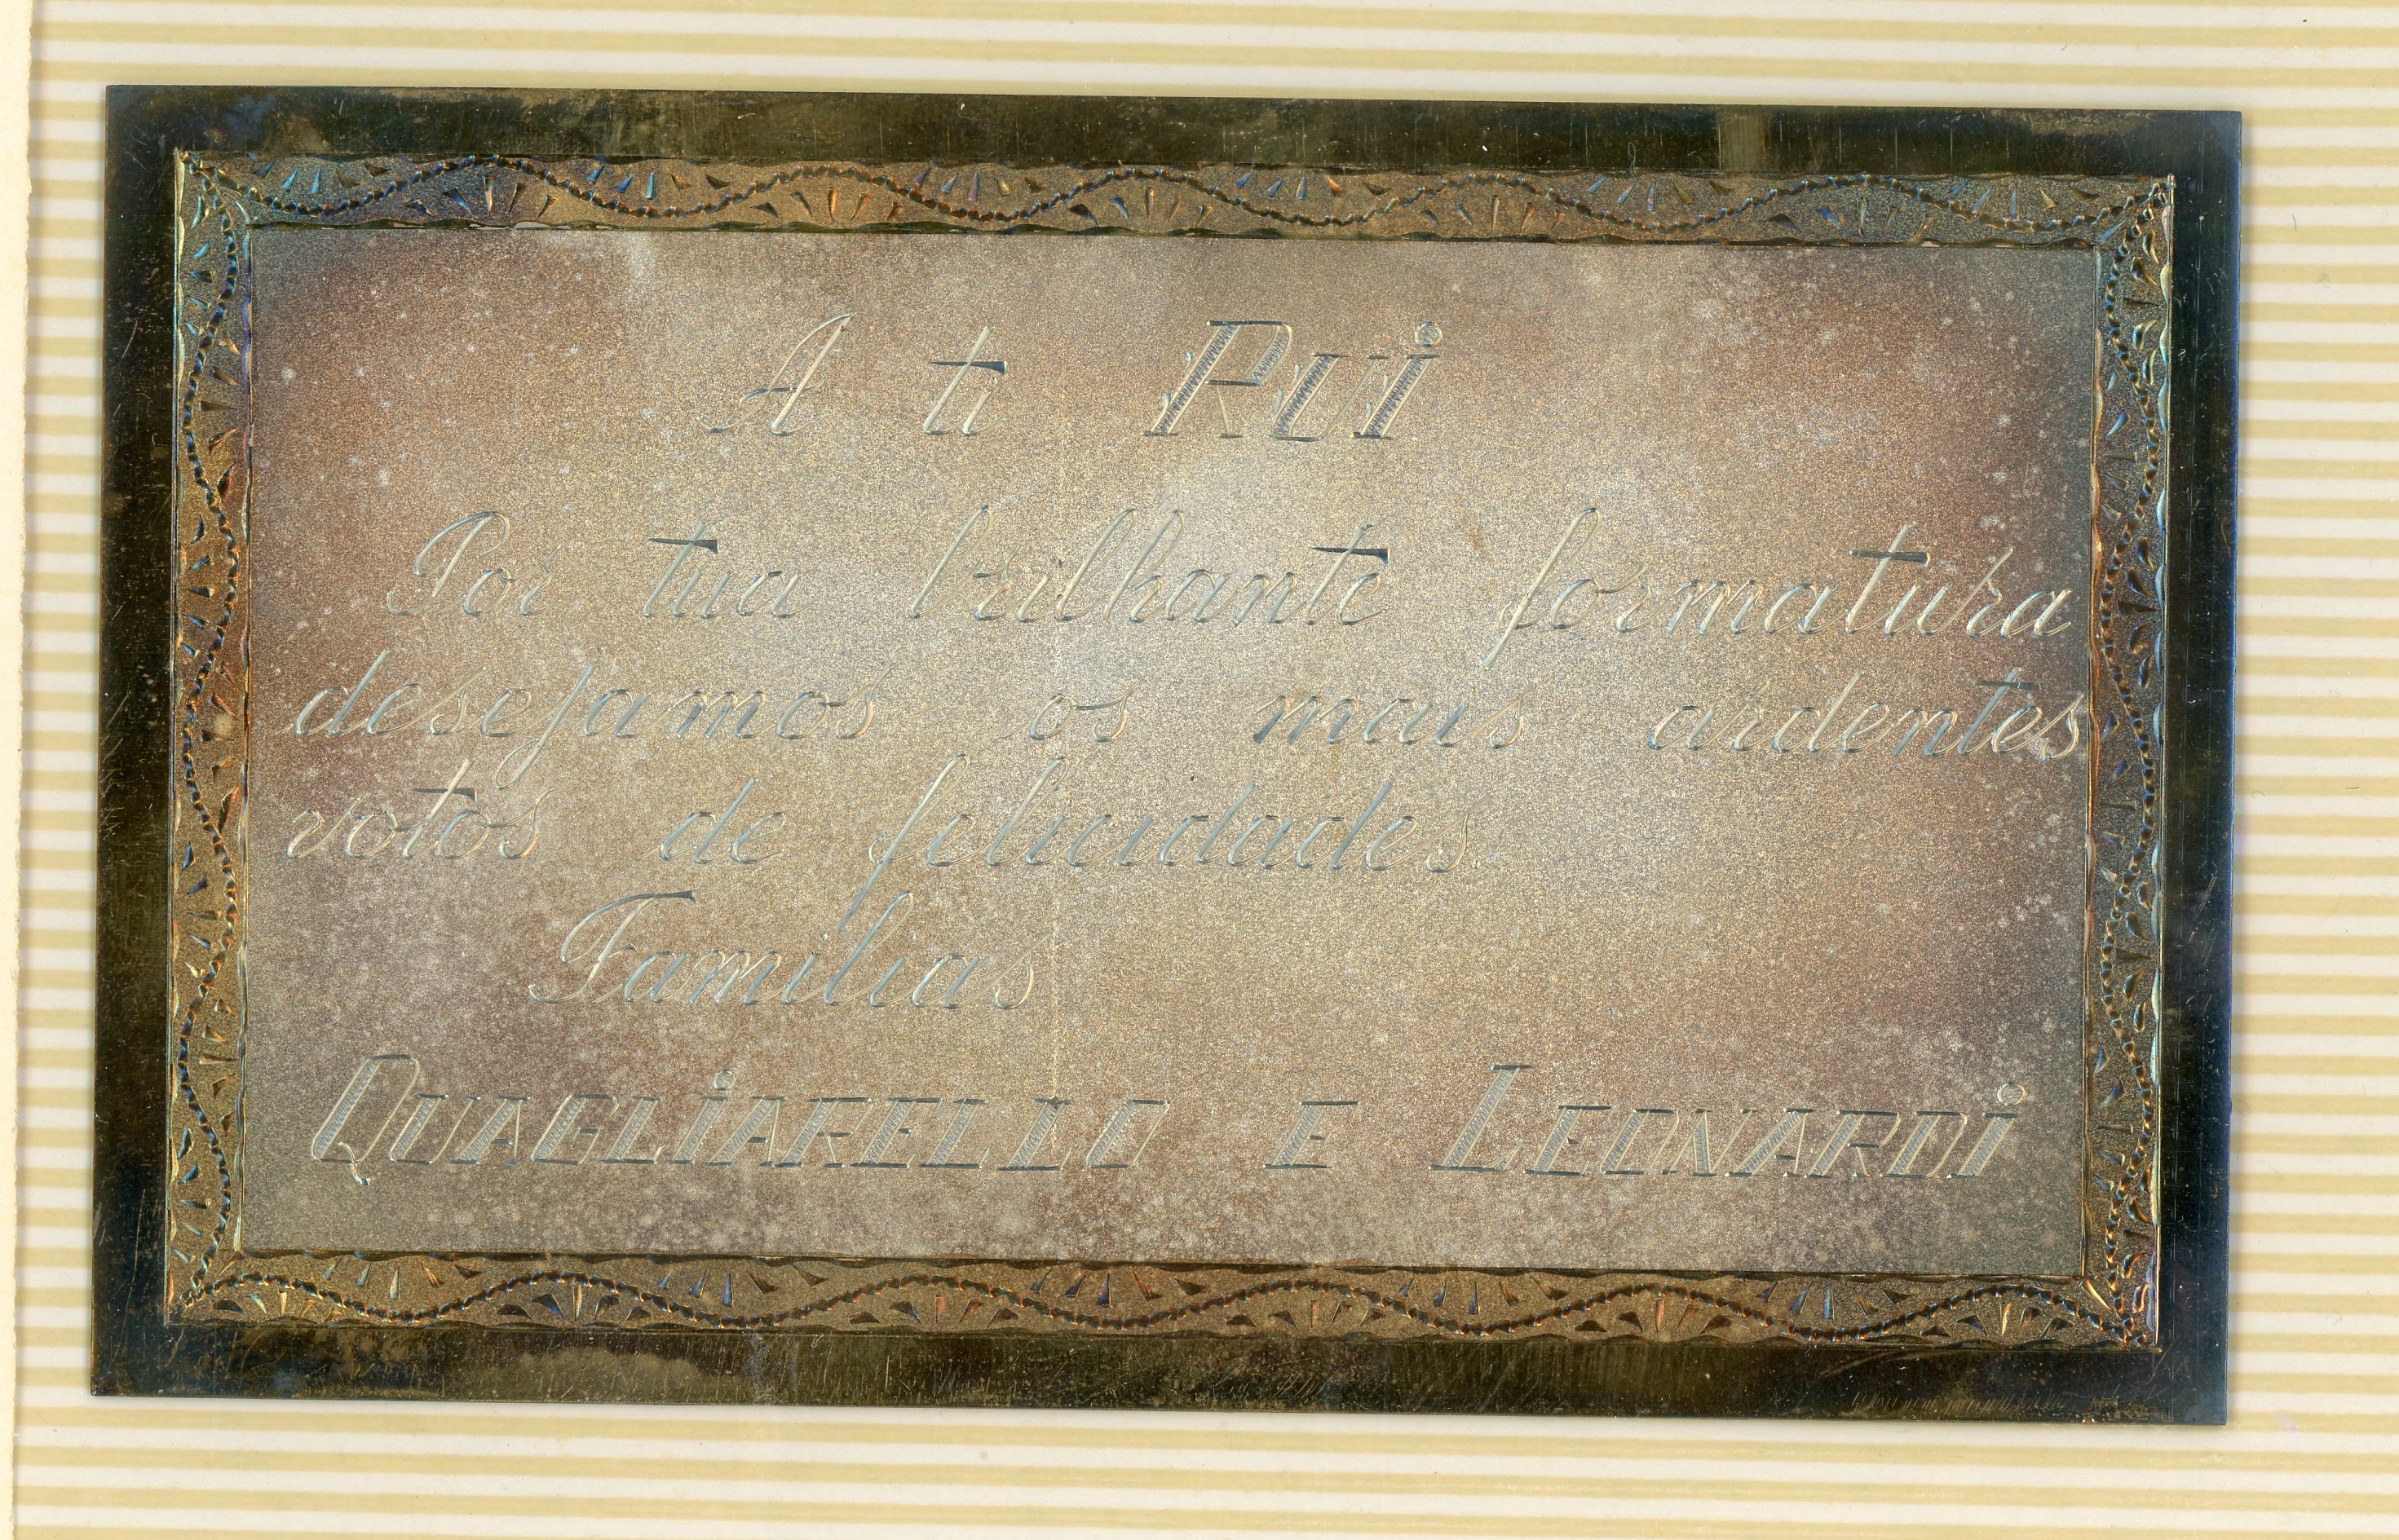 A ti Rui
Por tua brilhante formatura
desejamos os mais ardentes
votos de felicidades
Familias
QUAGLiARELLO E LEONARDi